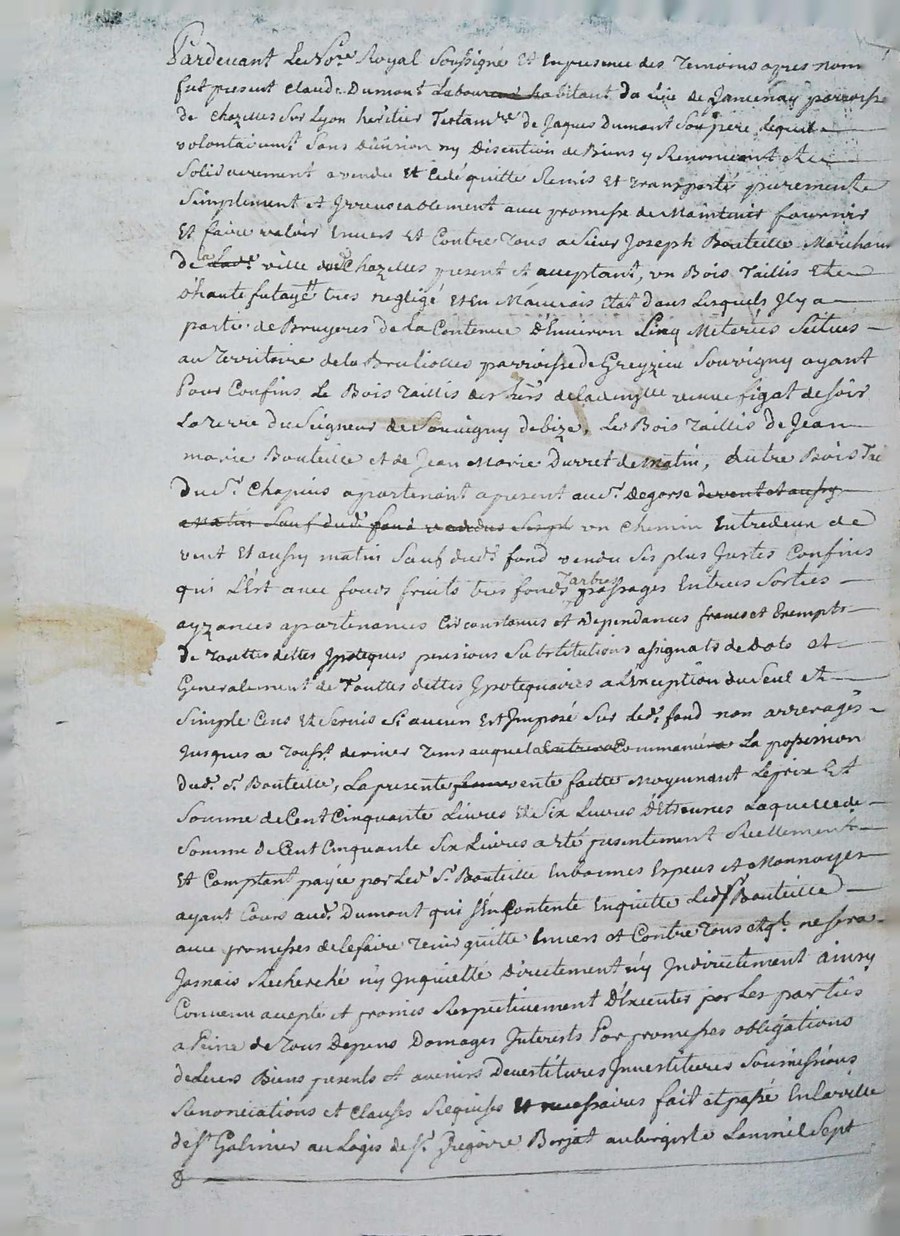 Pardevant Le No.re Royal Soussigné Et En presence des Temoins apres nom
fut present Claude Dumont Laboureur habitant Du lieu de parroisse
de Chazelles Sur Lyon heritier Testam.re de Jaques Dumont Son pere, lequel
volontairem.t Sans Division ny Discution de Biens y Renoncant et
Solidairement a vendu Et Cedé quitté Remis Et transporté purement
Simplement et Irrevocablement avec promesse de Maintenir fournir
Et faire valoir Envers Et Contre Tous a Sieur Joseph Bouteille Marchand
de la ville de Chazelles present et acceptant, un Bois Taillis Et
d'haute futaye tres negligé Et En Mauvais Etat dans Lesquels Il y a
partie de Bruyeres de la Contenue D'Environ Cinq Meterées Scitués
au Territoire de la Bruliottes parroisse de Greyzieu Souvigny ayant
Pour Confins Le Bois Taillis des hers de la veuve figat de soir
La Terre du Seigneur de Souvigny de bize, Le Bois Taillis de Jean
marie Bouteille et de Jean Marie Durret de Matin, autre Bois
Du S.r Chapuis apartenant a present au S.r Degorse de vent et aussy
a Matin Sauf dud.t fond un chemin Entredeux de
vent Et aussy matin Sauf dud.t fond vendu Ses plus Justes Confins
qui L'Est avec fonds fruits tres fonds arbres passages Entrees Sorties
ayzances apartenances Circonstances et Dependances francs et Exempts
de Touttes dettes Ipoteques pensions Substitutions assignats de Dots et
Generalement de Touttes dettes Ipotequaires a L'Exception du Seul et
Simple Cens Et Servis Si aucun Est Imposé Sur led.t fond non arreragés
Jusques a Touss.t dernier Tems auquel a Commancé La possession
Dud. S.r Bouteille, La presente vente faitte Moyennant Le prix Et
Somme de Cent Cinquante Livres Et Six Livres D'Etrennes Laquelle de
Somme de Cent Cinquante Six Livres a Eté presentement Reellement
Et Comptant payée par Led. S.r Bouteille En bonnes Especes et Monnoyes
ayant Cours aud. Dumont qui S'En Contente En quitte Led. S.r Bouteille
avec promesses de le faire Tenir quitte Envers et Contre Tous et q.l ne sera
Jamais Recherché n'y Inquietté Directement n'y Indirectement ainsy
Convenu accepté et promis Respectivement D'Executer par Les parties
a Peine de Tous Depens Domages Interests Par promesses obligations
de Leurs Biens presents et avenirs Devestitures Investitures Soumissions
Renonciations et Clauses Requises Et necessaires fait et passé En La ville
de S.t Galmier au Logis de S.r Gregoire Borjat aubergiste L'an mil Sept
&